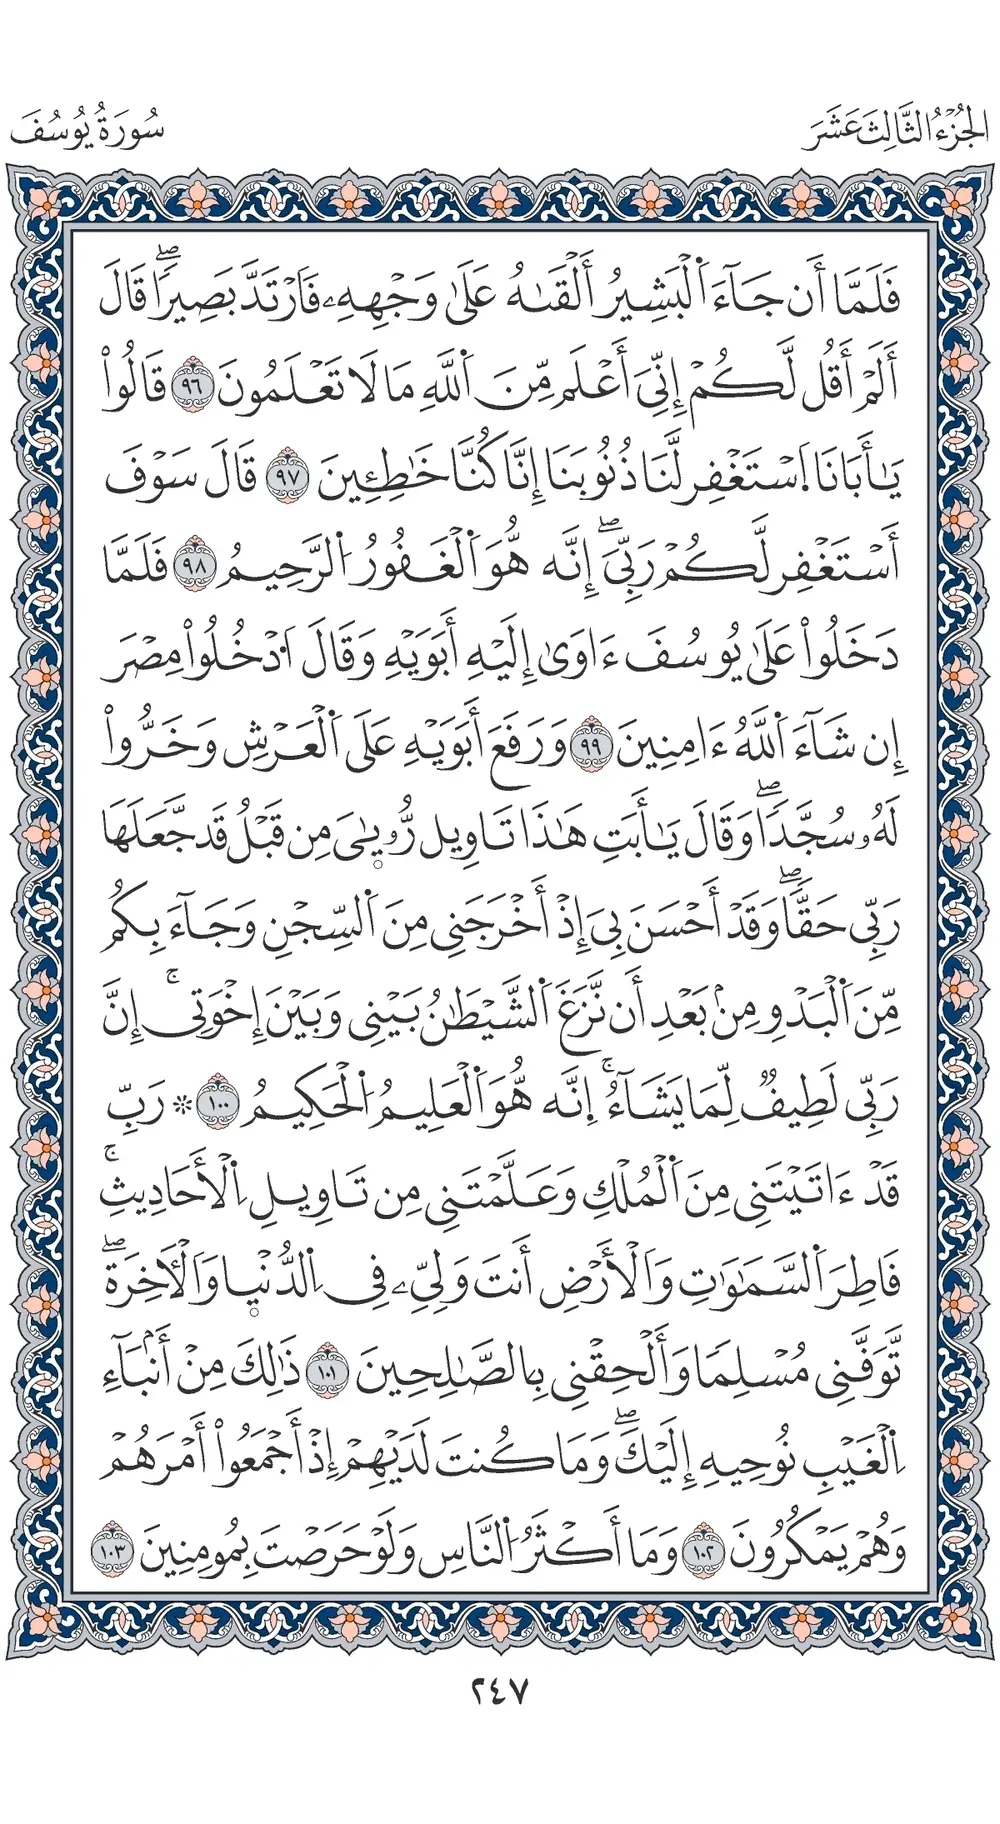 الجُزْءُ الثَّالِثَ عَشَرَ
سُورَةُ يُوسُفَ
فَلَمَّا أَن جَآءَ اَ۬لْبَشِيرُ أَلْقَىٰهُ عَلَىٰ وَجْهِهِۦ فَارْتَدَّ بَصِيراٗۖ قَالَ
أَلَمْ أَقُل لَّكُمْ إِنِّيَ أَعْلَم مِّنَ اَ۬للَّهِ مَا لَا تَعْلَمُونَ ٩٦ قَالُواْ
يَٰأَبَانَا اَ۪سْتَغْفِر لَّنَا ذُنُوبَنَا إِنَّا كُنَّا خَٰطِـِٔينَ ٩٧ قَالَ سَوْفَ
أَسْتَغْفِر لَّكُمْ رَبِّيَۖ إِنَّه هُّوَ اَ۬لْغَفُورُ اُ۬لرَّحِيمُ ٩٨ فَلَمَّا
دَخَلُواْ عَلَىٰ يُوسُفَ ءَاوَىٰ إِلَيْهِ أَبَوَيْهِ وَقَالَ اَ۟دْخُلُواْ مِصْرَ
إِن شَآءَ اَ۬للَّهُ ءَامِنِينَ ٩٩ وَرَفَعَ أَبَوَيْهِ عَلَى اَ۬لْعَرْشِ وَخَرُّواْ
لَهُۥ سُجَّداٗۖ وَقَالَ يَٰأَبَتِ هَٰذَا تَاوِيل رُّۥيٰٜيَ مِن قَبْلُ قَد جَّعَلَهَا
رَبِّي حَقّاٗۖ وَقَدْ أَحْسَنَ بِيَ إِذْ أَخْرَجَنِي مِنَ اَ۬لسِّجْنِ وَجَآءَ بِكُم
مِّنَ اَ۬لْبَدْوِ مِنۢ بَعْدِ أَن نَّزَغَ اَ۬لشَّيْطَٰنُ بَيْنِي وَبَيْنَ إِخْوَتِيۚ إِنَّ
رَبِّي لَطِيفٞ لِّمَا يَشَآءُۚ إِنَّه هُّوَ اَ۬لْعَلِيمُ اُ۬لْحَكِيمُ ١٠٠ ۞ رَبِّ
قَدْ ءَاتَيْتَنِي مِنَ اَ۬لْمُلْكِ وَعَلَّمْتَنِي مِن تَاوِيلِ اِ۬لْأَحَادِيثِۚ
فَاطِرَ اَ۬لسَّمَٰوَٰتِ وَالْأَرْضِ أَنتَ وَلِيِّۦ فِي اِ۬لدُّنْيٜا وَالْأٓخِرَةِۖ
تَّوَفَّنِي مُسْلِماٗ وَأَلْحِقْنِي بِالصَّٰلِحِينَ ١٠١ ذَٰلِكَ مِنْ أَنۢبَآءِ
اِ۬لْغَيْبِ نُوحِيهِ إِلَيْكَۖ وَمَا كُنتَ لَدَيْهِمْ إِذْ أَجْمَعُواْ أَمْرَهُمْ
وَهُمْ يَمْكُرُونَ ١٠٢ وَمَا أَكْثَرُ اُ۬لنَّاسِ وَلَوْ حَرَصْتَ بِمُومِنِينَ ١٠٣
٢٤٧